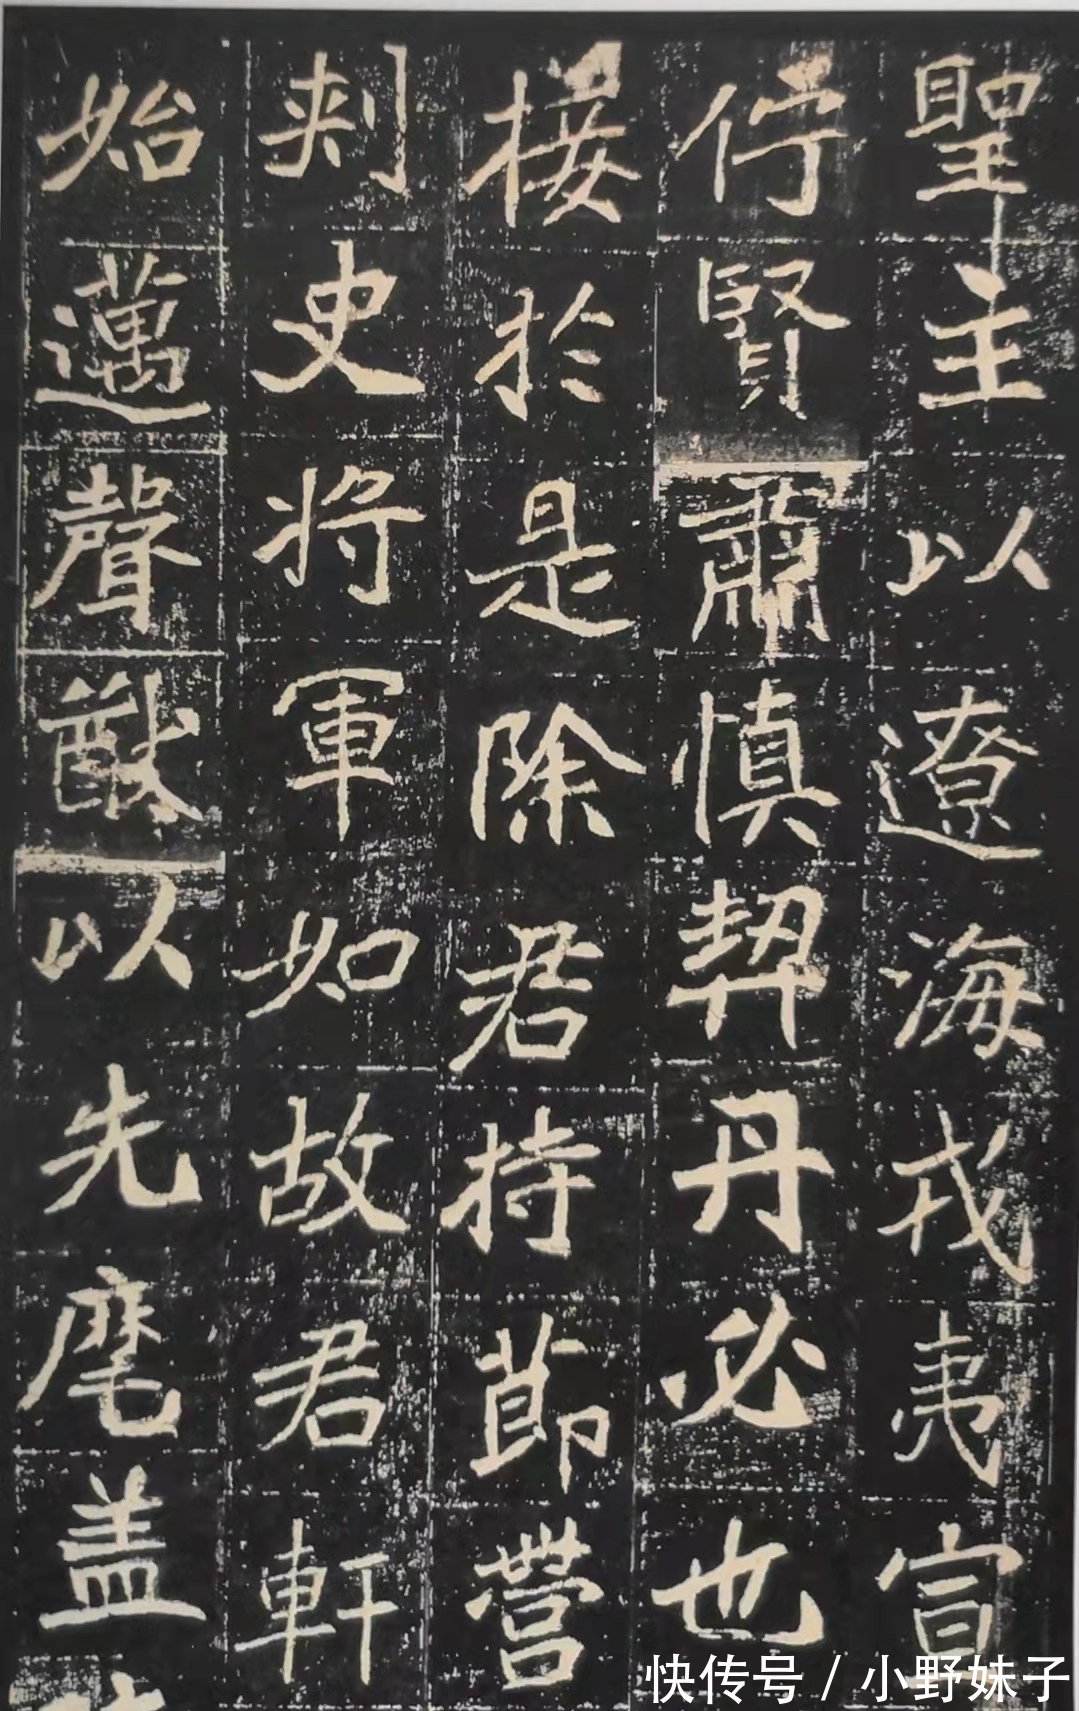 聖主以遼海戎夷宣
佇賢肅慎契丹必也
接於是除君持節營
刺史將軍如故君軒
始邁聲猷以先麾盖
快传号 / 小野妹子